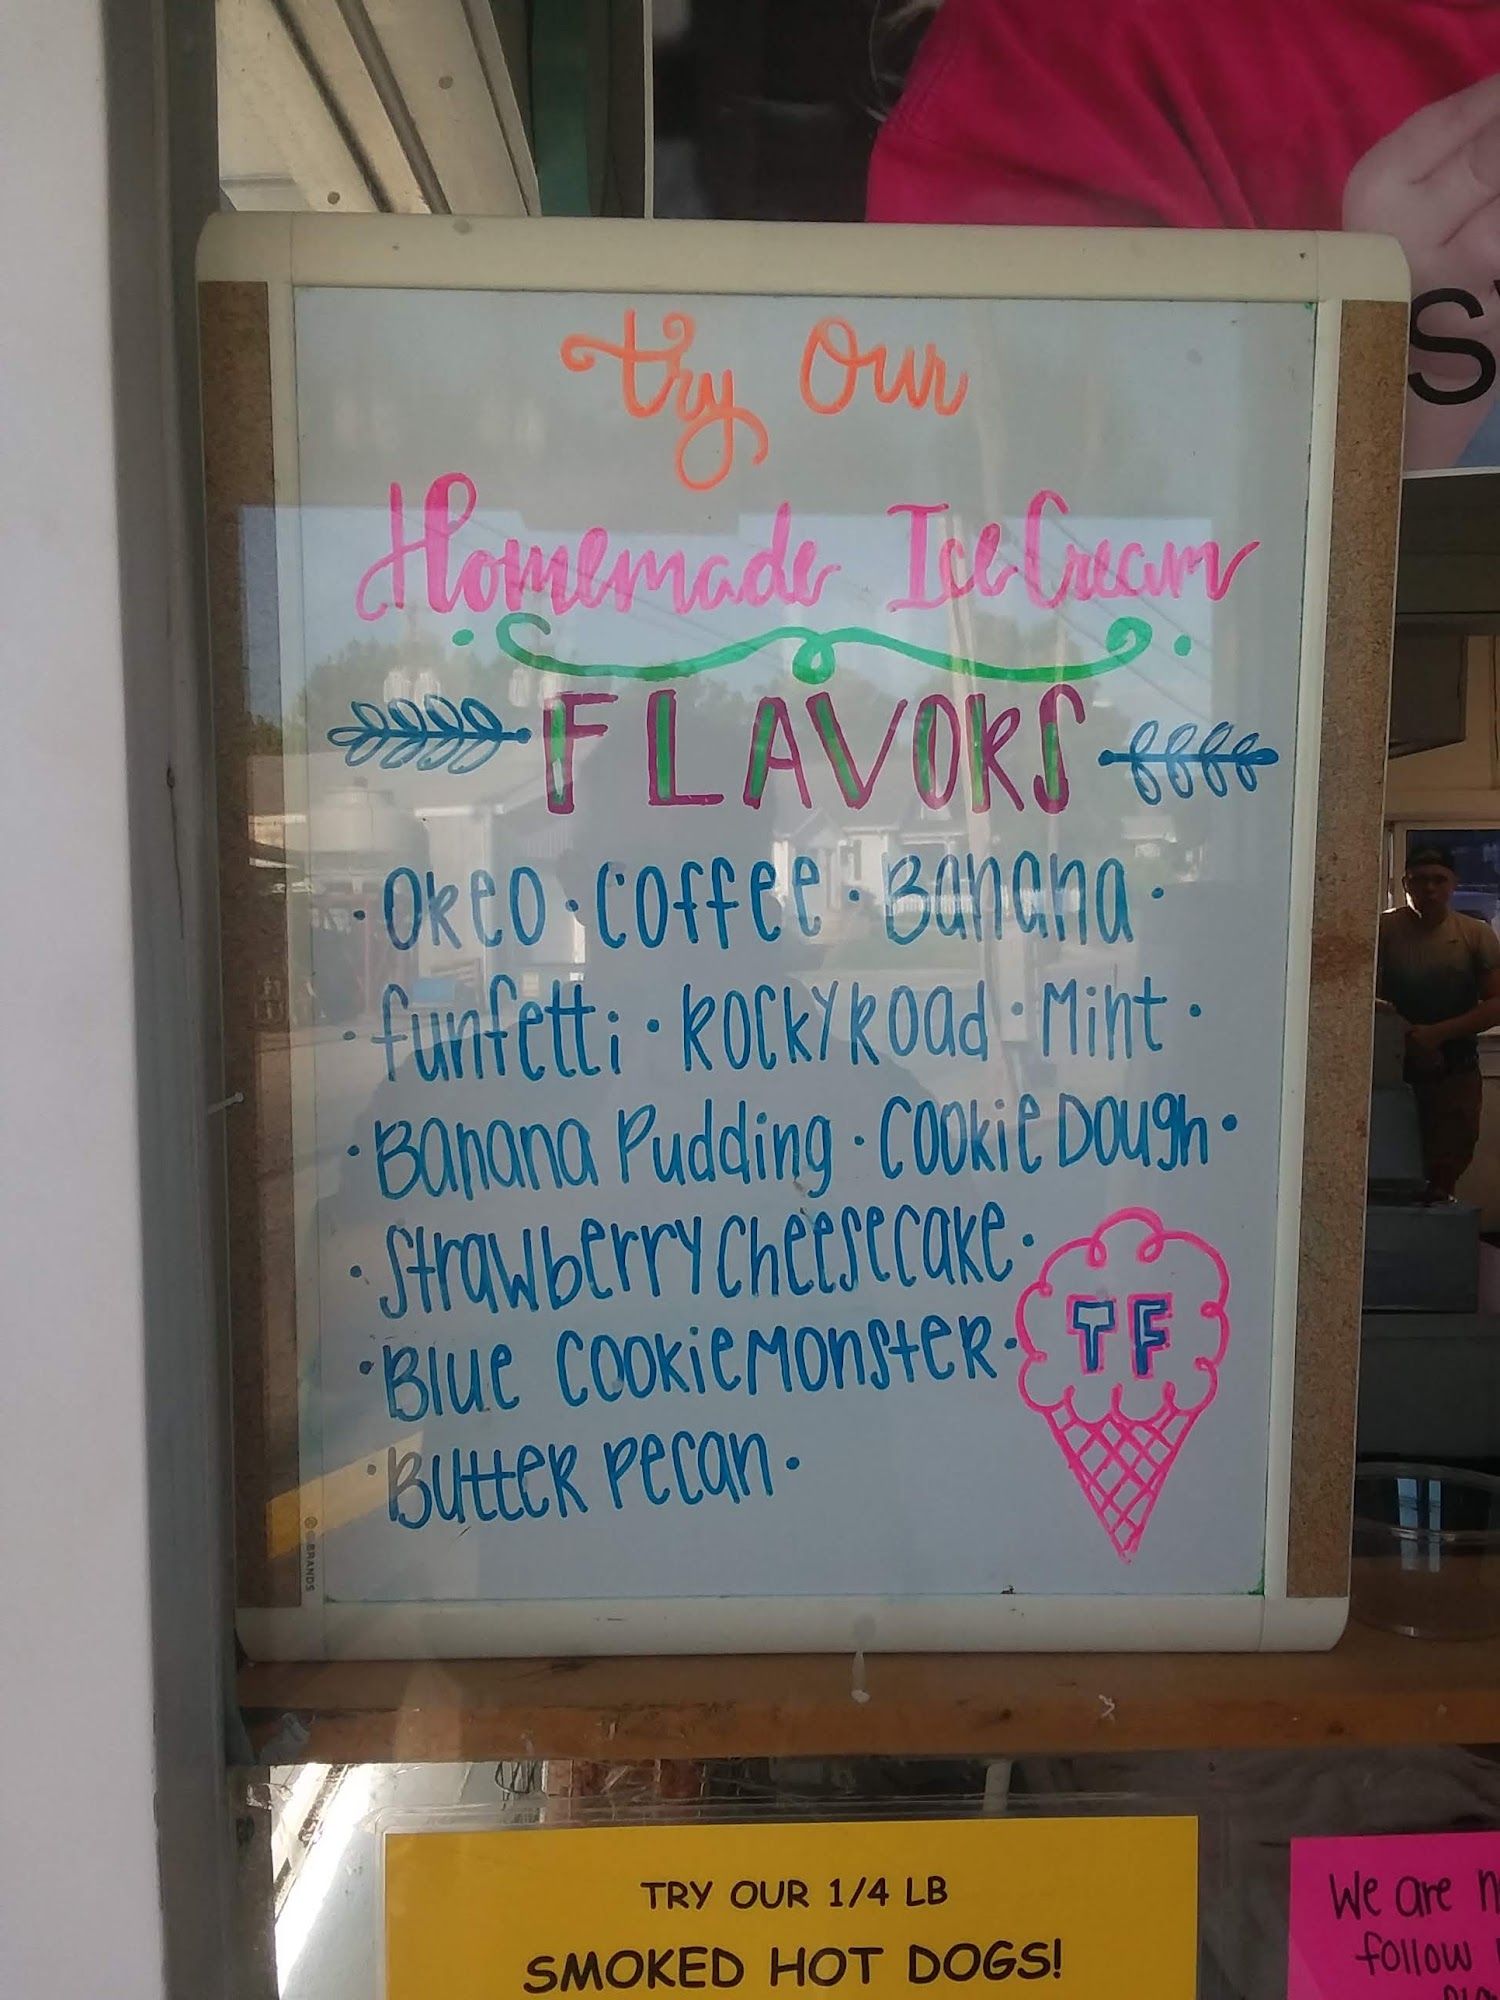 Try Our
Homemade Ice Cream
FLAVORS
· Oreo · Coffee · Banana ·
· funfetti · Rocky Road · Mint ·
· Banana Pudding · Cookie Dough ·
· Strawberry Cheesecake ·
· Blue Cookie Monster ·
TF
· Butter Pecan ·
BRANDS
TRY OUR 1/4 LB
SMOKED HOT DOGS!
We are
follow